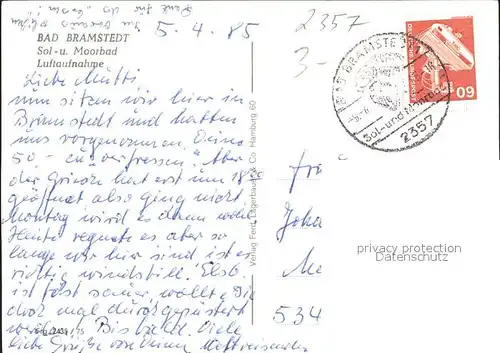 5.4.85
2357
BAD BRAMSTEDT
Sol- u. Moorbad
Luftaufnahme
3-
Liebe Mutti
nun sitzen wir hier in
Bramstedt und hatten
uns vorgenommen Deine
50,- zu verfressen! Aber
der Grieche hat erst um 18.00
geöffnet also ging nicht
Montag wird es dann wohl
Heute regnete es aber so
lange wir hier sind ist es
richtig windstill. Elso
ist fast sauer, wollte Sie
doch mal durchgepustert
werden. Bis bald. Viele
liebe Grüße von Deinen Weltreisenden
Verlag Ferd. Lagerbauer & Co Hamburg 60
BAD BRAMSTEDT 1
Sol- und Moorbad
2357
60
Joha
534
privacy protection
Datenschutz